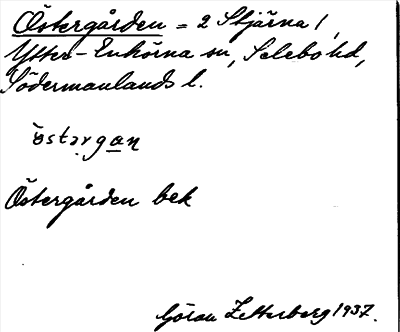 Östergården = 2 Stjärna 1,
Ytter-Enhörna sn, Selebo hd,
Södermanlands l.
östərgɑn
Östergården bek
Göran Zetterberg 1937.